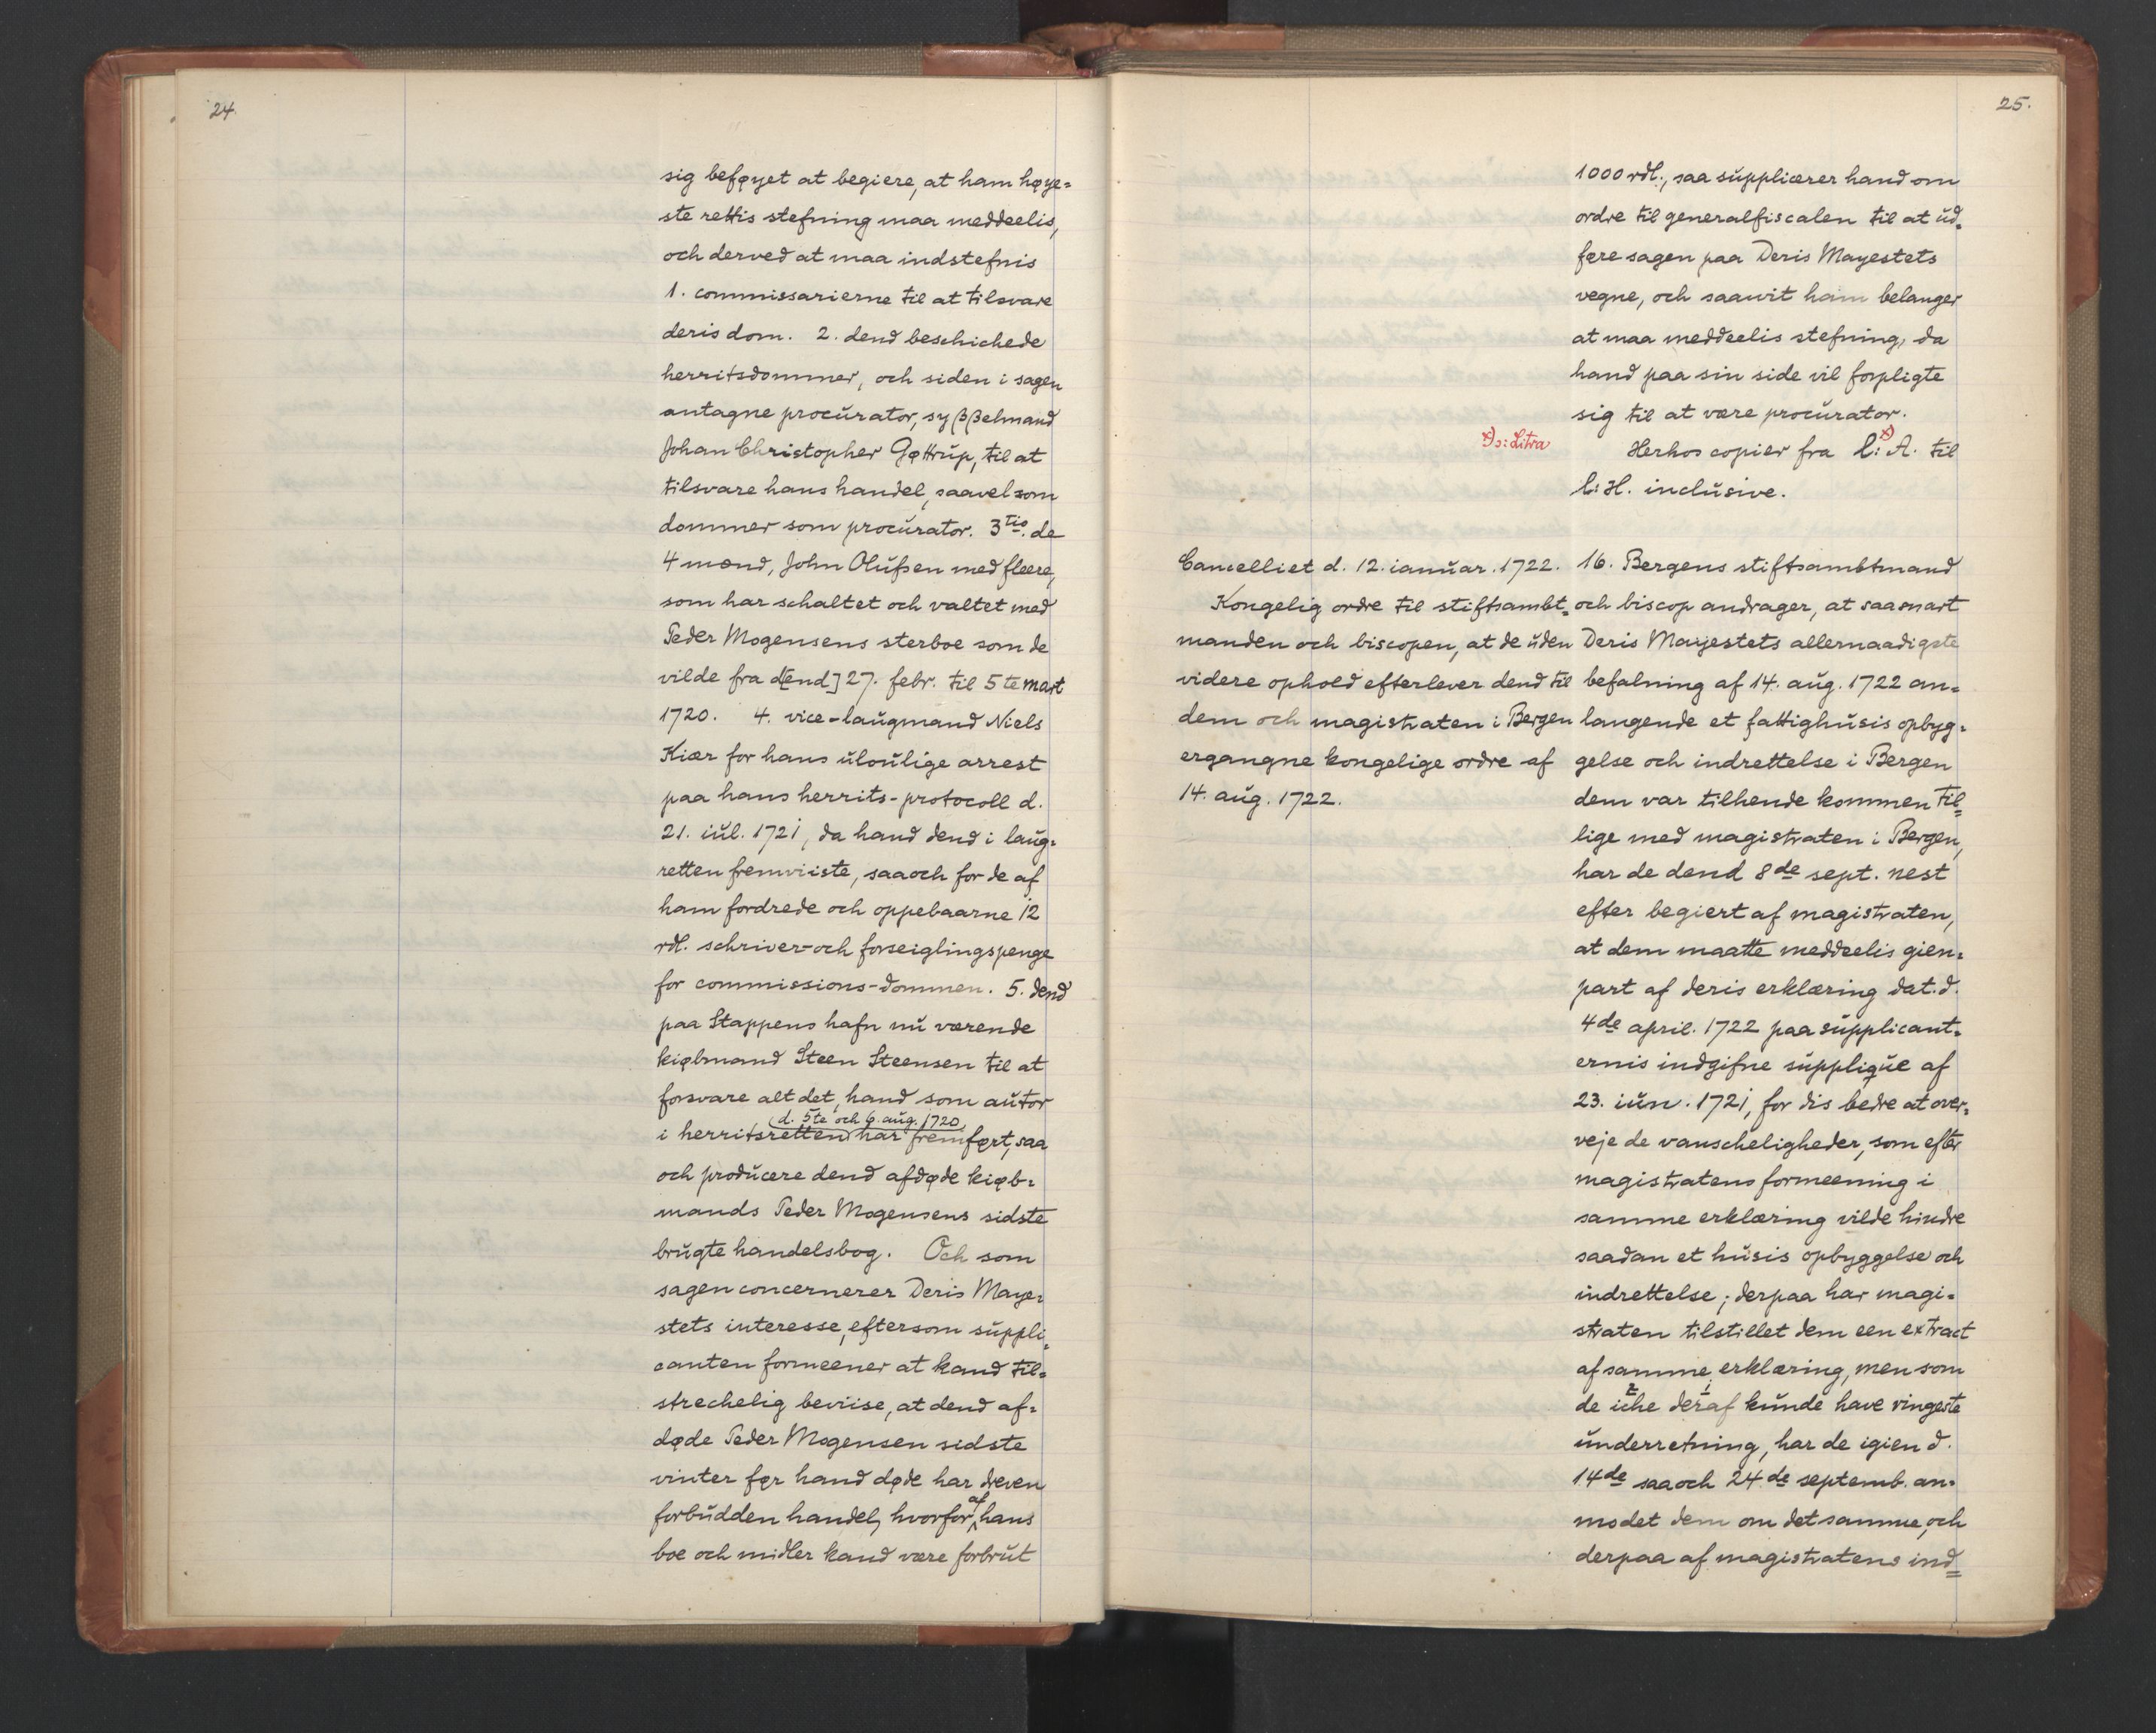 24.
sig beføyet at begiere, at ham høye=
ste rettis stefning maa meddeelis,
och derved at maa indstefnis
1. commissarierne til at tilsvare
deris dom. 2. dend beschichede
herritsdommer, och siden i sagen
antagne procurator, syßelmand
Johan Christopher Gøttrup, til at
tilsvare hans handel, saavel som
dommer som procurator. 3tio. de
4 mænd, John Olufsen med fleere,
som har schaltet och valtet med
Peder Mogensens sterboe som de
vilde fra d[end] 27. febr. til 5te mart
1720. 4. vice-laugmand Niels
Kiær for hans ulovlige arrest
paa hans herrits-protocoll d.
21. iul. 1721, da hand dend i laug=
retten fremviiste, saaoch for de af
ham fordrede och oppebaarne 12
rdl. schriver- och forseiglingspenge
for commissions-dommen. 5. dend
paa Stappens hafn nu værende
kiøbmand Steen Steensen til at
forsvare alt det, hand som autor
d. 5te och 6. aug. 1720
i herritsretten har fremført, saa
och producere dend afdøde kiøb=
mands Peder Mogensens sidste
brugte handelsbog. Och som
sagen concernerer Deris Maye=
stets interesse, eftersom suppli=
canten formeener at kand til=
strechelig beviise, at dend af=
døde Peder Mogensen sidste
vinter før hand døde har dreven
forbudden handel, hvorfor af hans
boe och midler kand være forbrut
25.
1000 rdl., saa supplicerer hand om
ordre til generalfiscalen til at ud=
føre sagen paa Deris Mayestets
vegne, och saawit ham belanger
at maa meddeelis stefning, da
hand paa sin side vil forpligte
sig til at være procurator.
x) ɔ: Litra
Herhos copier fra l:x) A. til
l: H. inclusive.
Cancelliet d. 12. ianuar. 1722.
Kongelig ordre til stiftsambt=
manden och biscopen, at de uden
videre ophold efterlever dend til
dem och magistraten i Bergen
ergangne kongelige ordre af
14. aug. 1722.
16. Bergens stiftsambtmand
och biscop andrager, at saasnart
Deris Mayestets allernaadigste
befalning af 14. aug. 1722 an=
langende et fattighusis opbyg=
gelse och indrettelse i Bergen
dem var tilhende kommen til=
lige med magistraten i Bergen,
har de dend 8de sept. nest
efter begiert af magistraten,
at dem maatte meddeelis gien=
part af deris erklæring dat. d.
4de april. 1722 paa supplicant=
ernis indgifne supplique af
23. iun. 1721, for dis bedre at over=
veje de vanscheligheder, som efter
magistratens formeening i
samme erklæring vilde hindre
saadan et husis opbyggelse och
indrettelse; derpaa har magi=
straten tilstillet dem een extract
af samme erklæring, men som
2 1
de iche deraf kunde have ringeste
underretning, har de igien d.
14de saaoch 24de septemb. an=
modet dem om det samme, och
derpaa af magistratens ind=